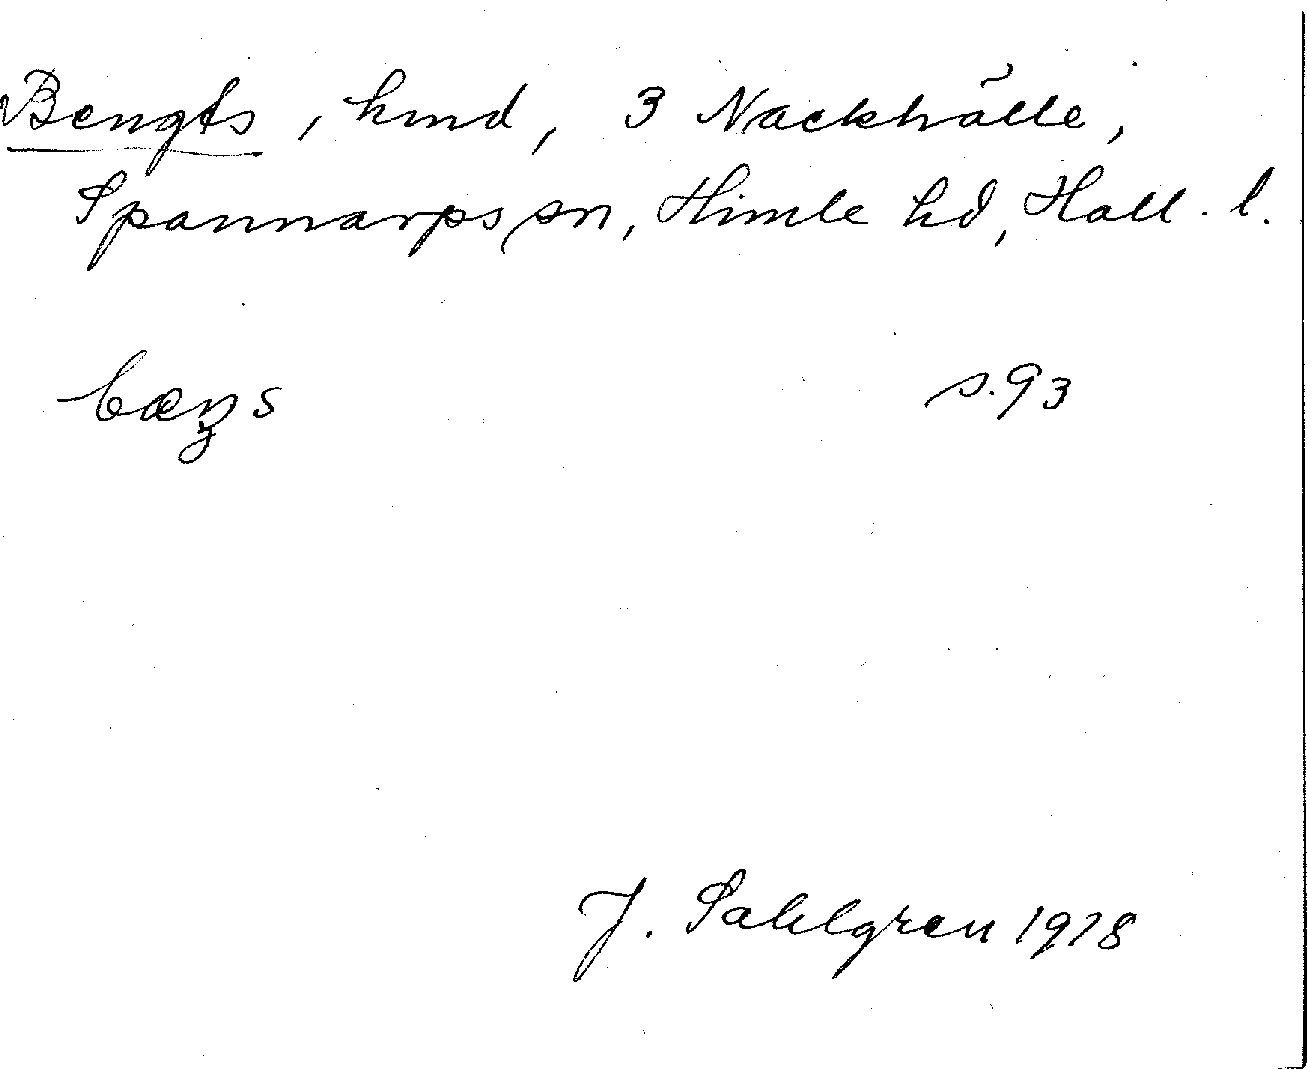 Bengts, hmd, 3 Nackhälle,
Spannarps sn, Himle hd, Hall. l.
bæŋs s. 93
J. Sahlgren 1918